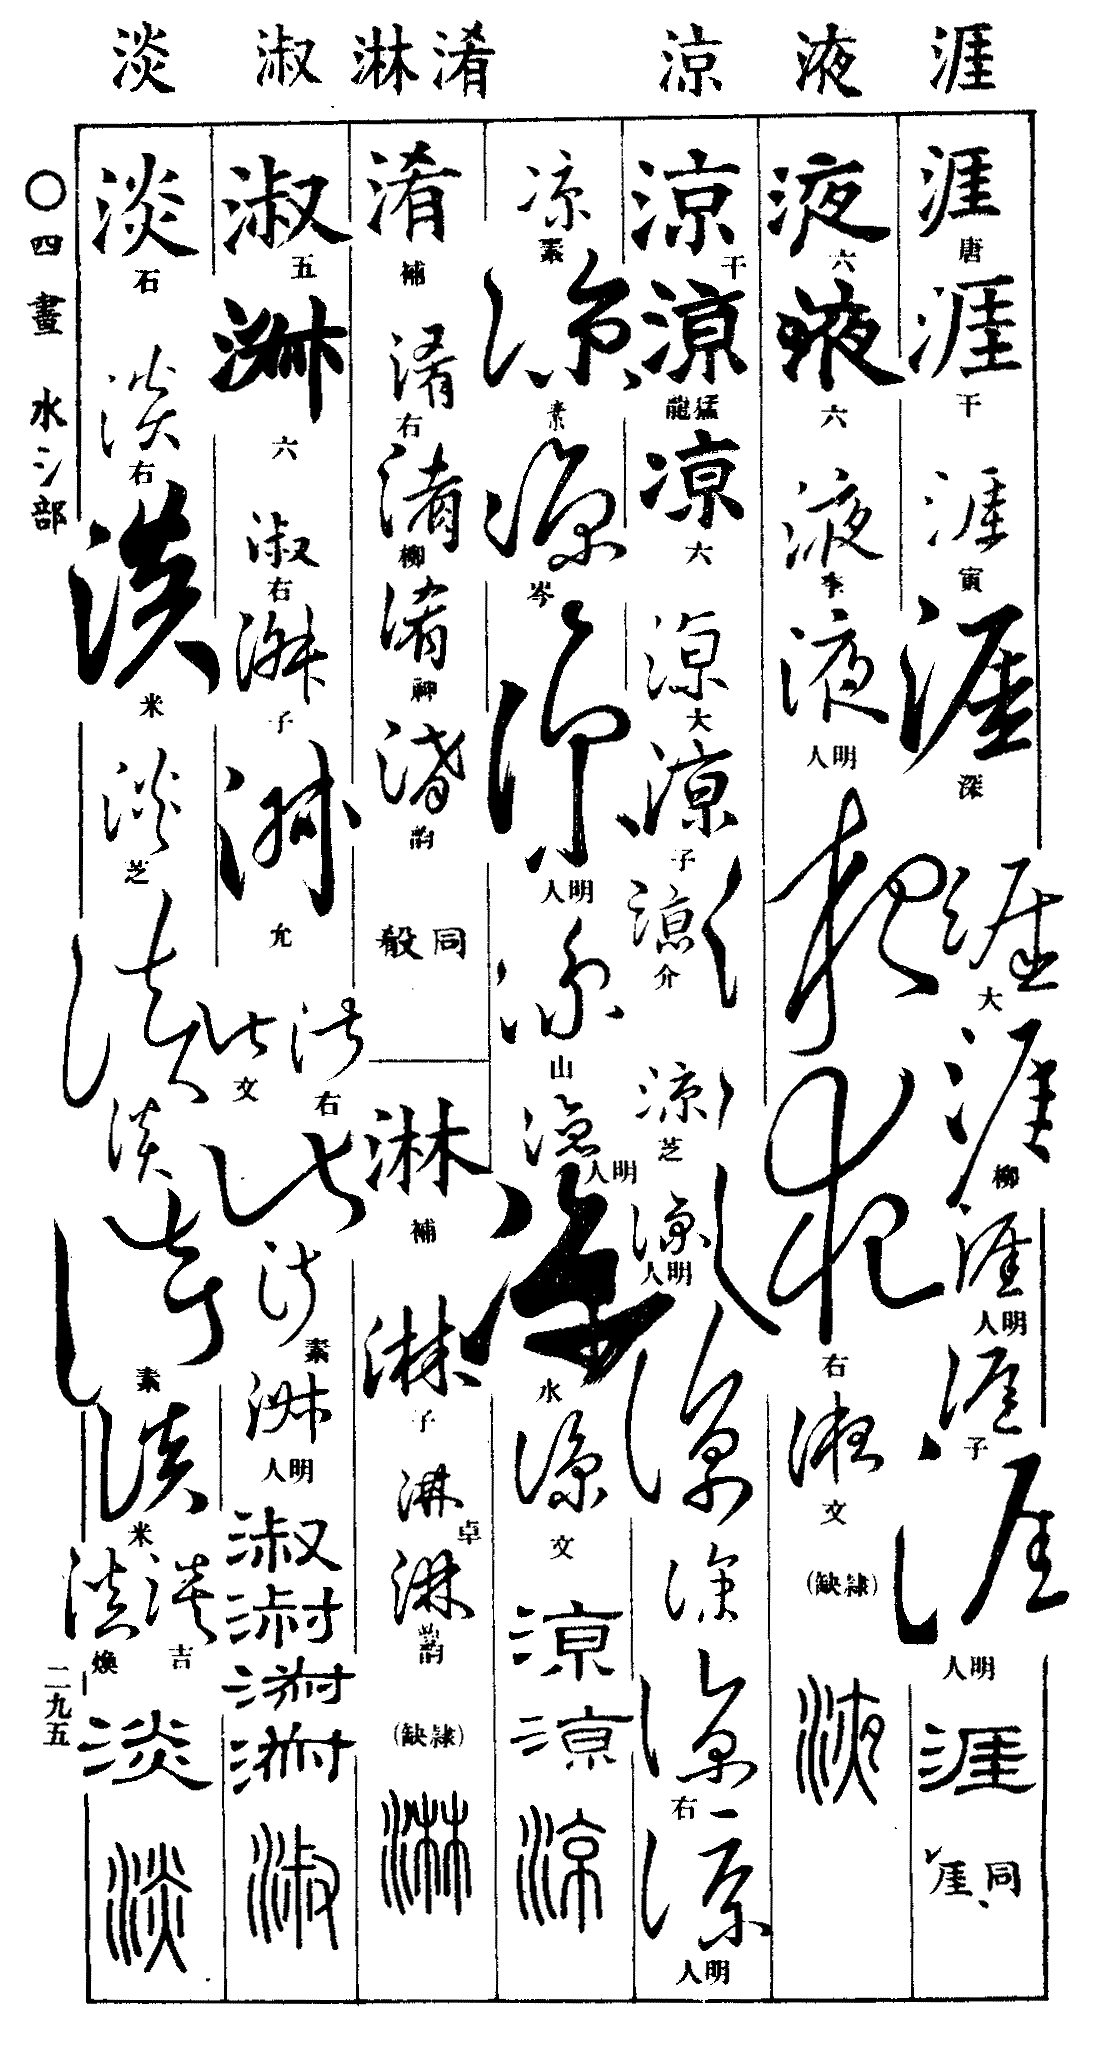 涯 液 涼 淆 淋 淑 淡
涯
唐
涯
干
涯
寅
涯
深
涯
大
涯
柳
涯
明人
涯
子
涯
明人
涯
同厓
液
六
液
六
液
李
液
明人
液
液
右
液
文
(隷缺)
液
涼
干
涼
猛龍
涼
六
涼
大
涼
子
涼
介
涼
芝
涼
明人
涼
涼
涼
右
涼
明人
涼
素
涼
素
涼
岑
涼
明人
涼
山
涼
明人
涼
水
涼
文
涼
涼
涼
淆
補
淆
右
淆
柳
淆
淆
韵
同殽
淋
補
淋
子
淋
卓
淋
韵
(隷缺)
淋
淑
五
淑
六
淑
右
淑
子
淑
允
淑
右
淑
文
淑
淑
素
淑
明人
淑
淑
淑
淑
淑
淡
石
淡
右
淡
米
淡
芝
淡
淡
淡
素
淡
米
淡
吉
淡
煥
淡
淡
〇四畫 水氵部
二九五